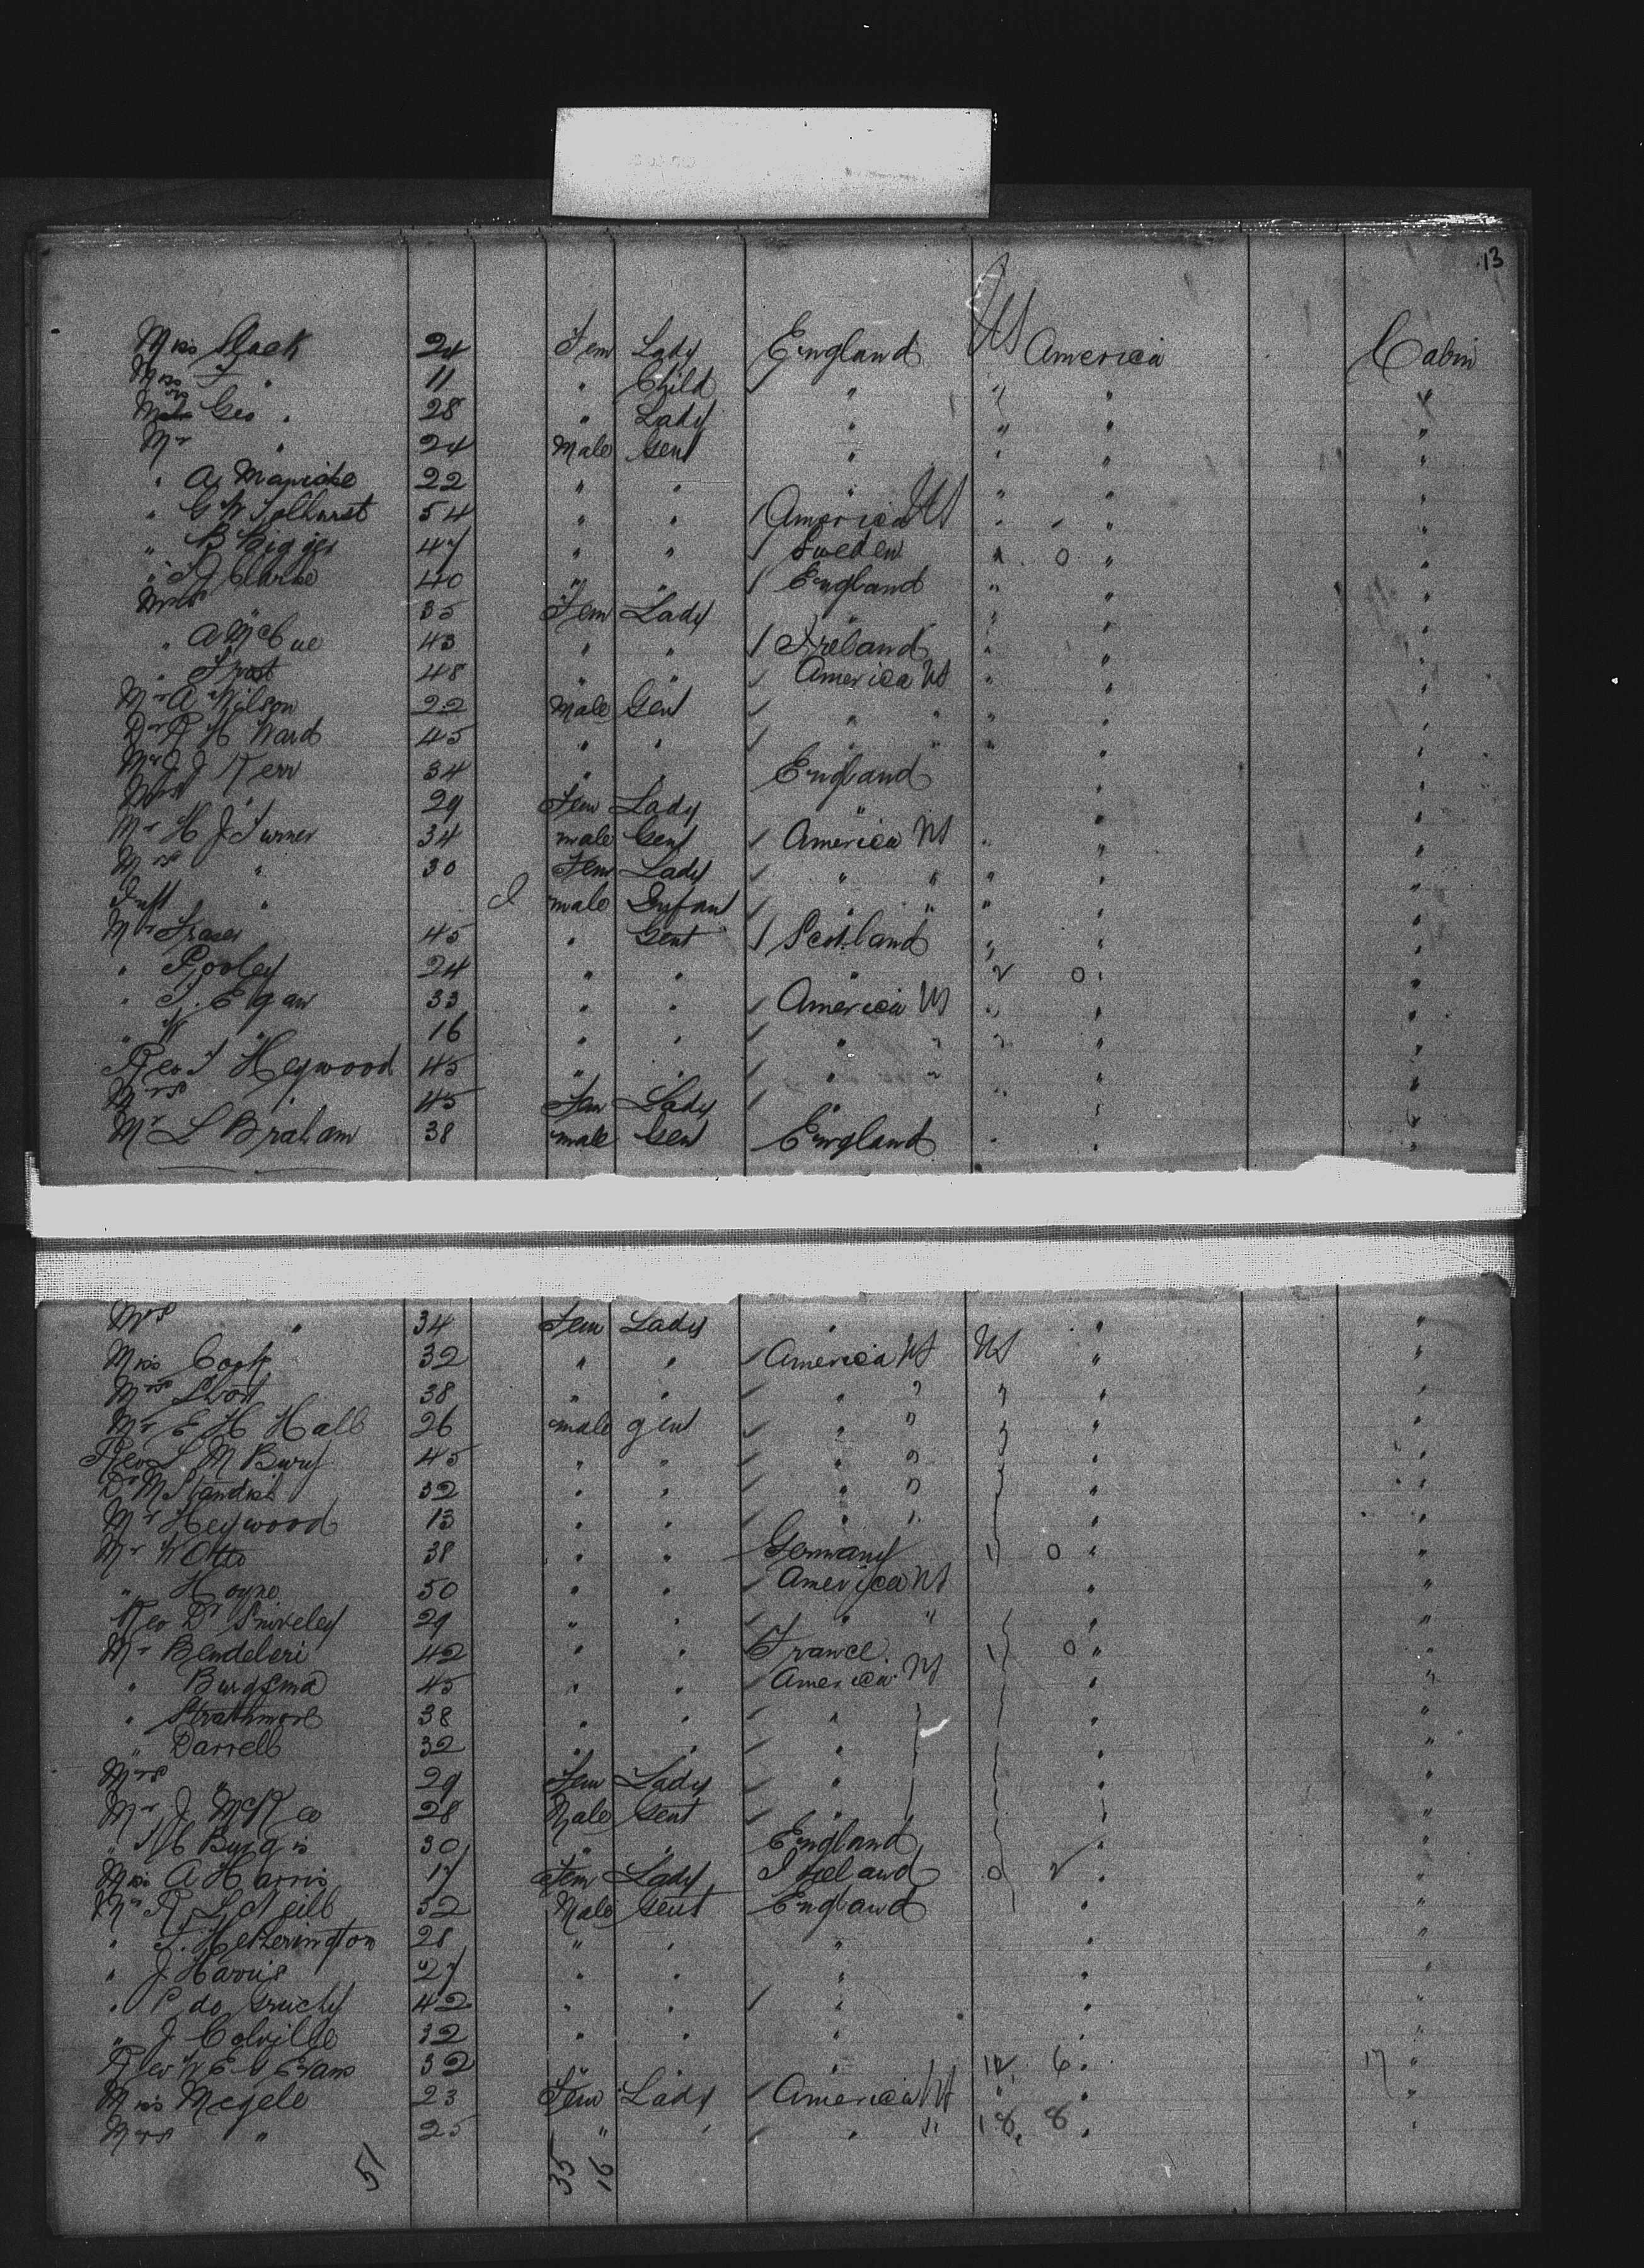 13
Miss Slack 24 Fem Lady England US America Cabin
Miss F " 11 " Child " " " "
Mrs Geo " 28 " Lady " " " "
Mr " 24 Male Gent " " " "
" A 22 " " " " " "
" G W Tolhurst 54 " " America US " " "
" B 47 " " Sweden " 0 " "
" Clarke 40 " " England " " "
Mrs " 35 Fem Lady " " " "
" A McCue 43 " " Ireland " " "
" Frost 48 " " America US " " "
Mr A Wilson 22 Male Gent " " " " "
Dr R H Ward 45 " " " " " " "
Mr J J Kerr 34 " " England " "
Mrs " 29 Fem Lady " " "
Mr H J Turner 34 male Gent America US " " "
Mrs " 30 Fem Lady " " " " "
Inft " male Infant " " " " "
Mr Fraser 45 " Gent Scotland " " "
" Pooley 24 " " " 0 " "
" T. Egan 33 " " America US " " "
" W " 16 " " " " " " "
Rev J Heywood 45 " " " " " "
Mrs " 45 Fem Lady " " " "
Mr L Braham 38 male Gent England " " "
Mrs " 34 Fem Lady " " "
Miss Cook 32 " " America US US " "
Mrs Short 38 " " " " " " "
Mr E H Hall 26 male gent " " " "
Rev L M Bury 45 " " " " " "
Dr M Standish 32 " " " " " "
Mr Heywood 13 " " " " " "
Mr W Otto 38 " " Germany 0 " "
" Hoyne 50 " " America US " "
Rev Dr Sniveley 29 " " " " " "
Mr Bendeleri 42 " " France 0 " "
" Burgsma 45 " " America US " "
" Strathmore 38 " " " " "
" Darrell 32 " " " " "
Mrs " 29 Fem Lady " " "
Mr J McK 28 Male Gent " "
" Burgis 30 " " England " "
Miss A Harris 17 Fem Lady Ireland "
Mr R L Neill 32 Male Gent England " "
" T. Hetherington 28 " " " " "
" J Harris 27 " " " " "
" P de Gruchy 42 " " " " "
" J Colville 32 " " " " "
Rev W E Evans 32 " 6 " 17 "
Miss Megele 23 Fem Lady America US " " "
Mrs " 25 " " " " 18 8 " "
51 35 16